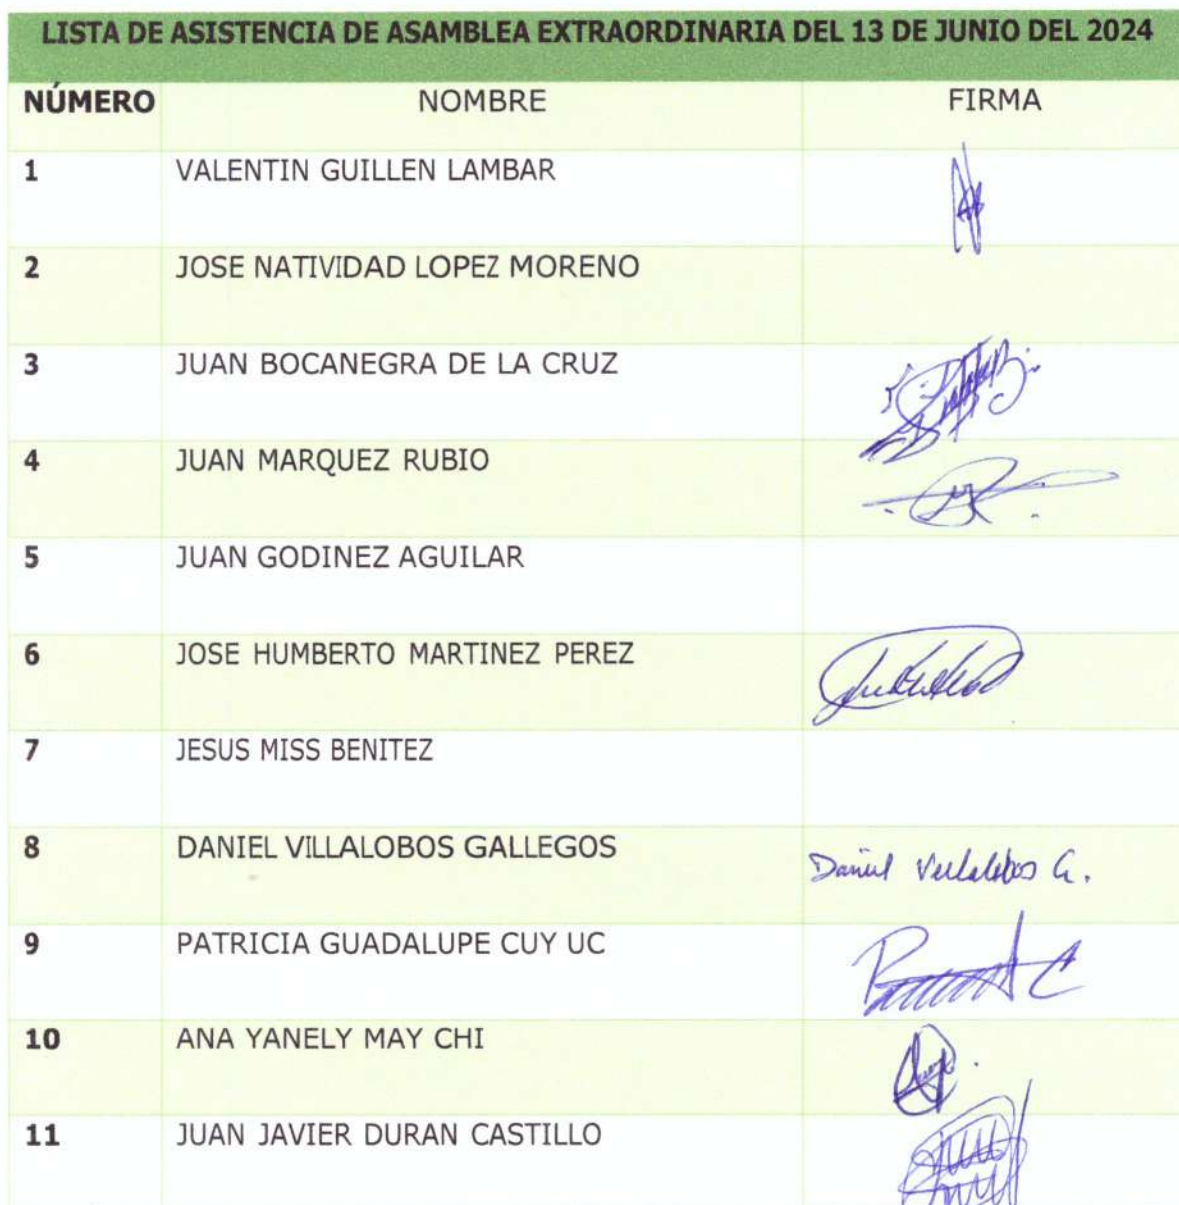 LISTA DE ASISTENCIA DE ASAMBLEA EXTRAORDINARIA DEL 13 DE JUNIO DEL 2024
NÚMERO NOMBRE FIRMA
1 VALENTIN GUILLEN LAMBAR
2 JOSE NATIVIDAD LOPEZ MORENO
3 JUAN BOCANEGRA DE LA CRUZ
4 JUAN MARQUEZ RUBIO
5 JUAN GODINEZ AGUILAR
6 JOSE HUMBERTO MARTINEZ PEREZ
7 JESUS MISS BENITEZ
8 DANIEL VILLALOBOS GALLEGOS Daniel Villalobos G.
9 PATRICIA GUADALUPE CUY UC
10 ANA YANELY MAY CHI
11 JUAN JAVIER DURAN CASTILLO